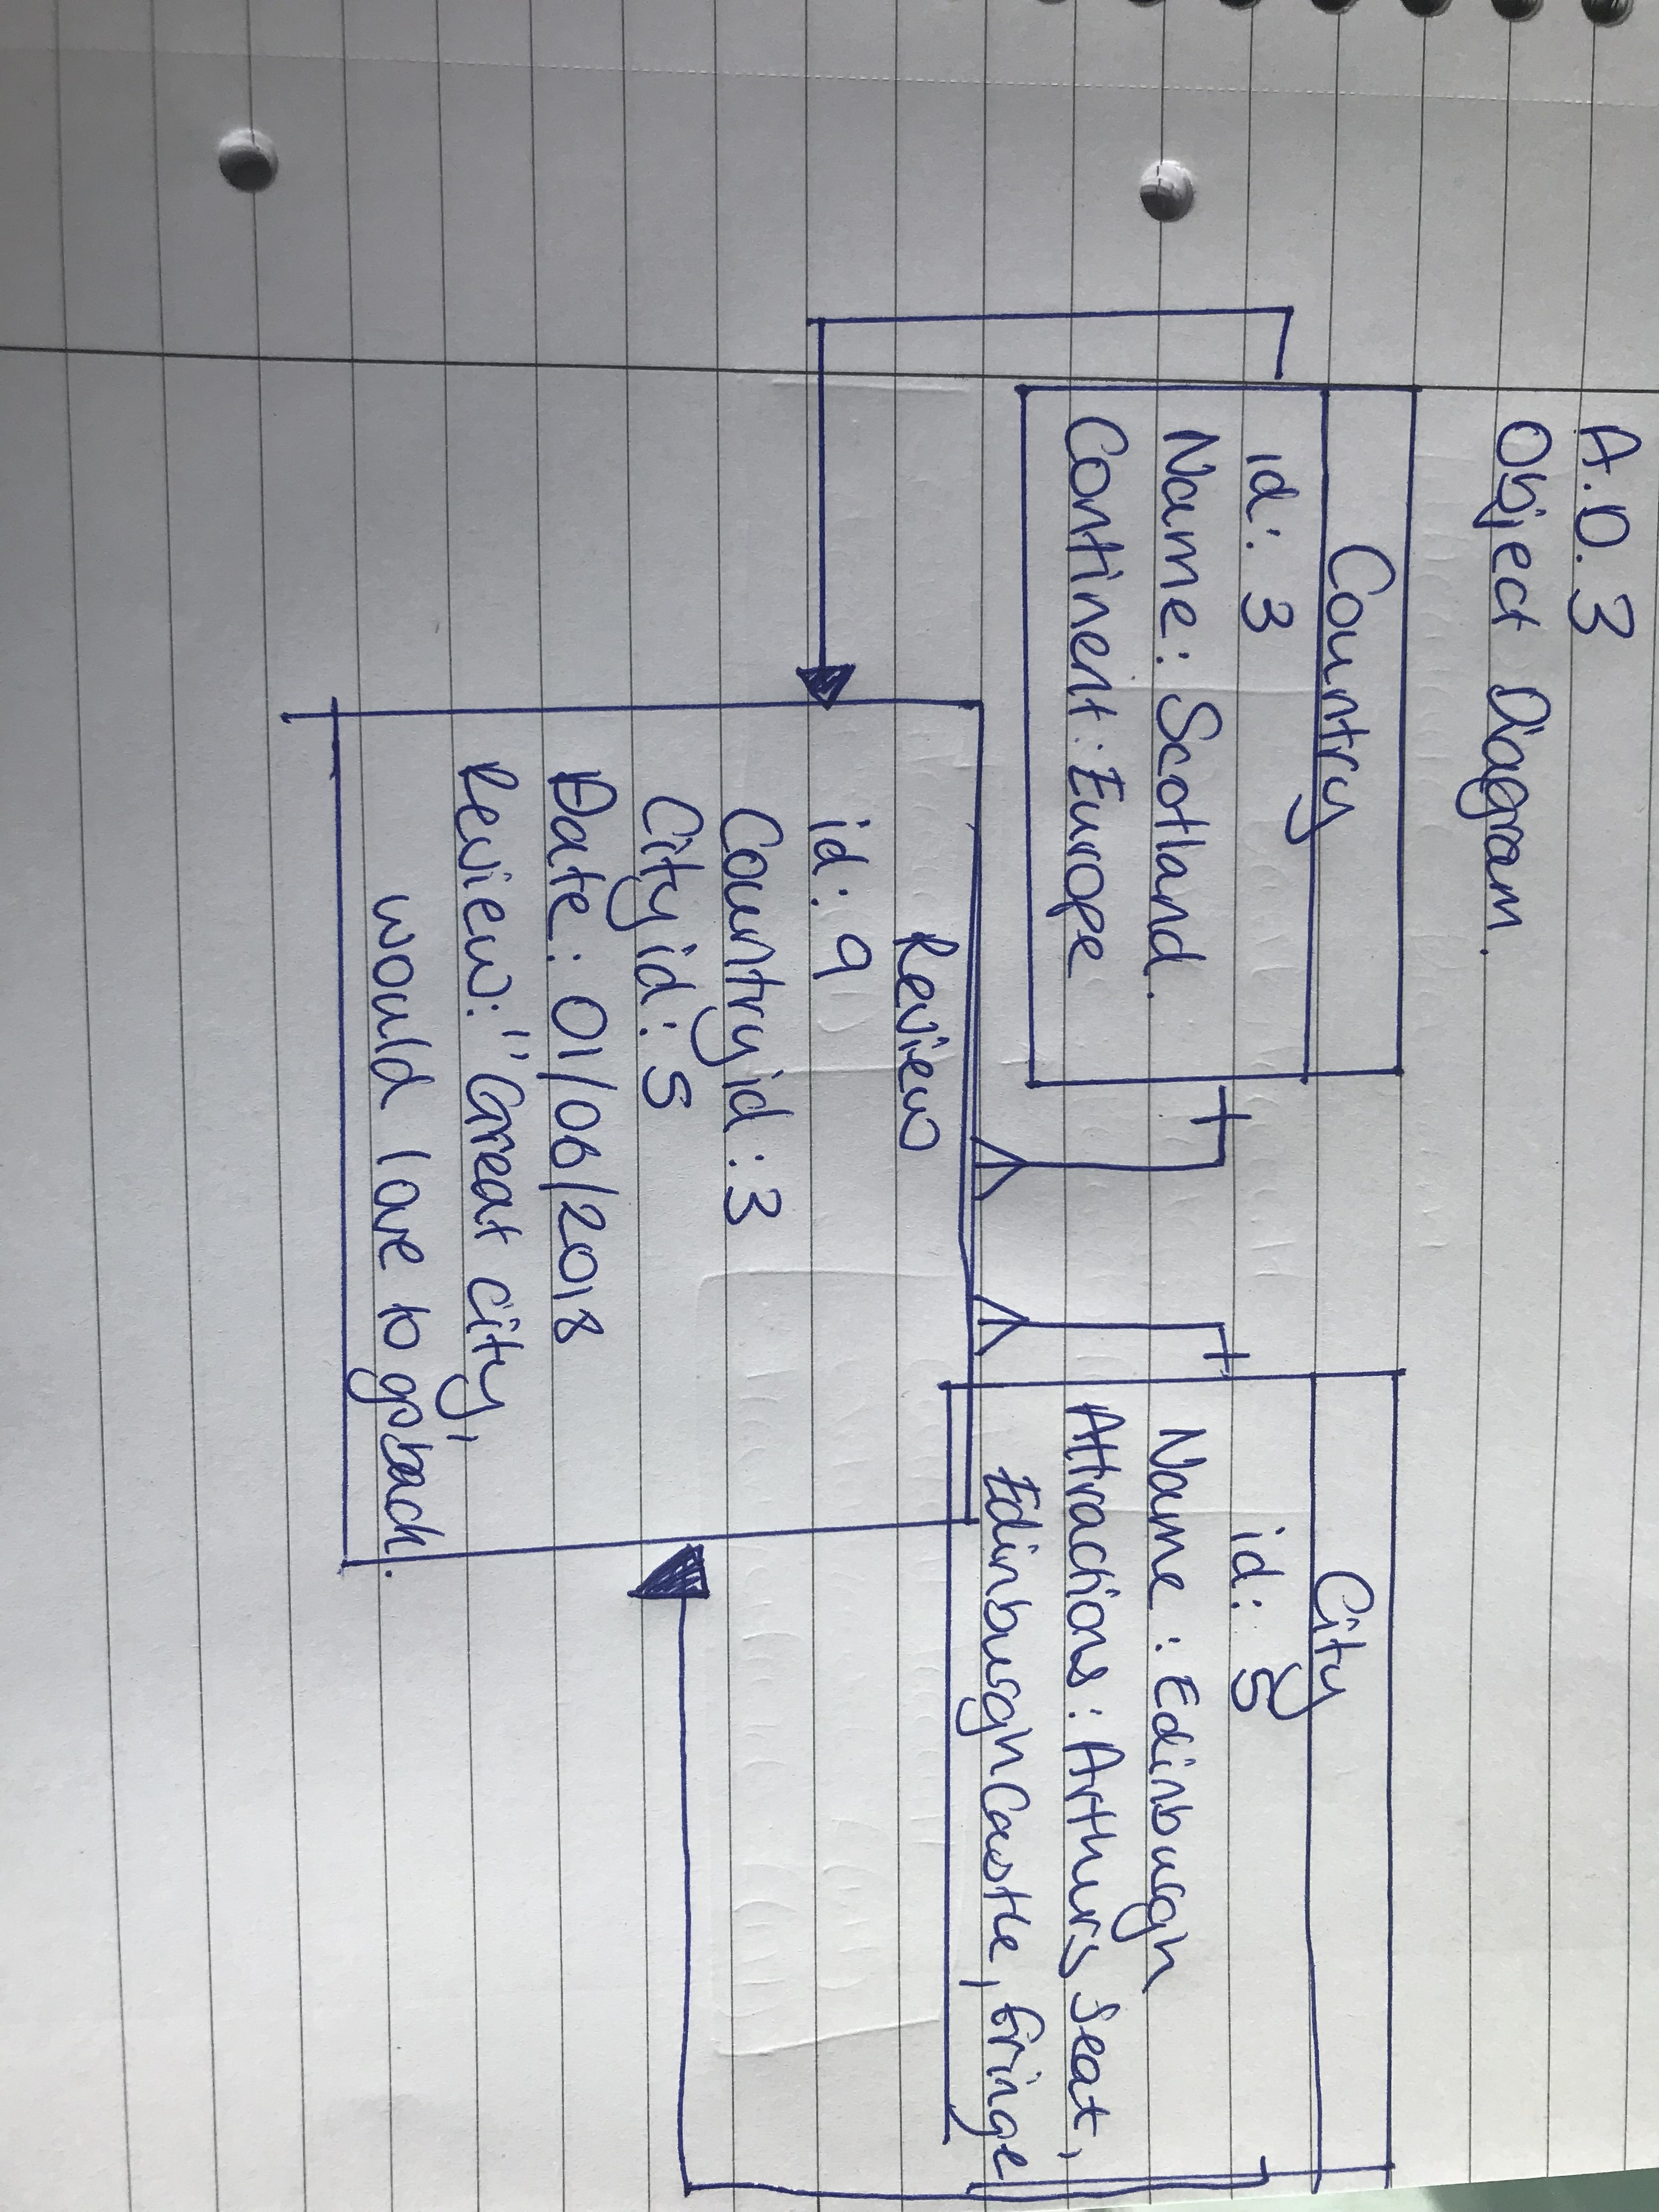 A.D.3
Object Diagram.
Country
id: 3
Name: Scotland.
Continent: Europe
City
id: 5
Name: Edinburgh
Attractions: Arthurs Seat,
Edinburgh Castle, fringe
Review
id: 9
Country id: 3
City id: 5
Date: 01/06/2018
Review: "Great city,
would love to go back.